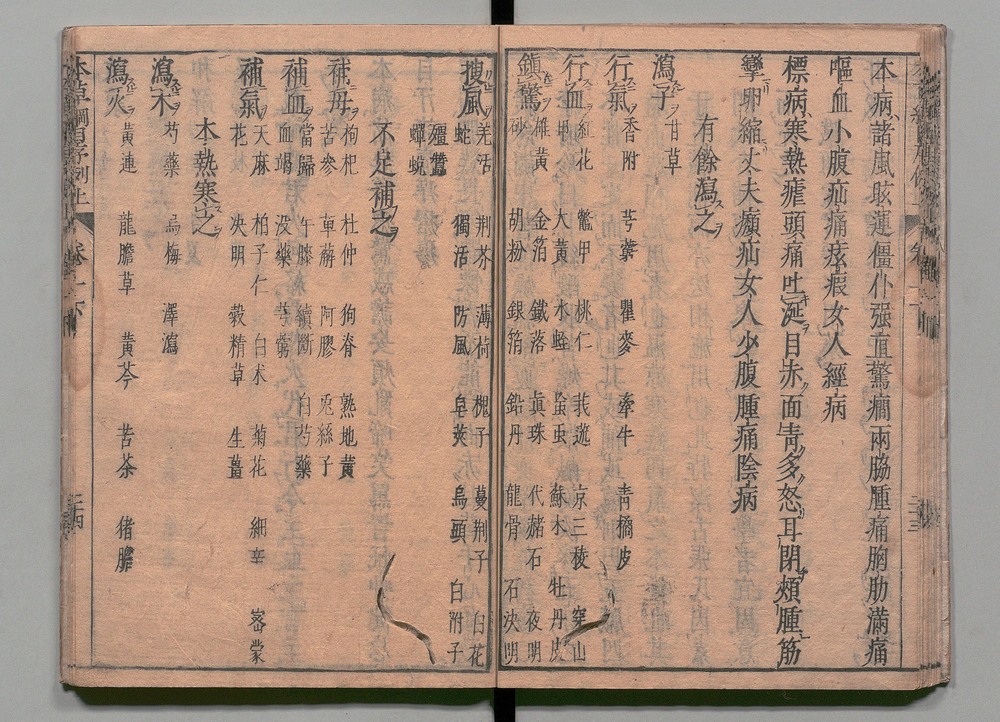 本病諸風眩運僵仆强直驚癇兩脇腫痛胸肋滿痛
嘔血小腹疝痛痃瘕女人經病
標病寒熱瘧頭痛吐涎目赤面靑多怒耳閉頰腫筋
攣卵縮丈夫㿗疝女人少腹腫痛陰病
有餘瀉之
瀉子 甘草
行氣 香附 芎藭 瞿麥 牽牛 靑橘皮
行血 紅花 鱉甲 桃仁 莪蒁 京三稜 穿山
甲 大黃 水蛭 䖟虫 蘇木 牡丹皮
鎮驚 雄黃 金箔 鐵落 眞珠 代赭石 夜明
砂 胡粉 銀箔 鉛丹 龍骨 石決明
搜風 羌活 荆芥 薄荷 槐子 蔓荆子 白花
蛇 獨活 防風 皂莢 烏頭 白附子
殭蠶
蟬蛻
不足補之
補母 枸杞 杜仲 狗脊 熟地黃
苦參 萆薢 阿膠 兎絲子
補血 當歸 牛膝 續斷 白芍藥
血竭 没藥 芎藭
補氣 天麻 柏子仁 白朮 菊花 細辛 密蒙
花 決明 穀精草 生薑
本熱寒之
瀉木 芍藥 烏梅 澤瀉
瀉火 黃連 龍膽草 黃芩 苦茶 猪膽
本草綱目序例上 卷
三十四
三十三